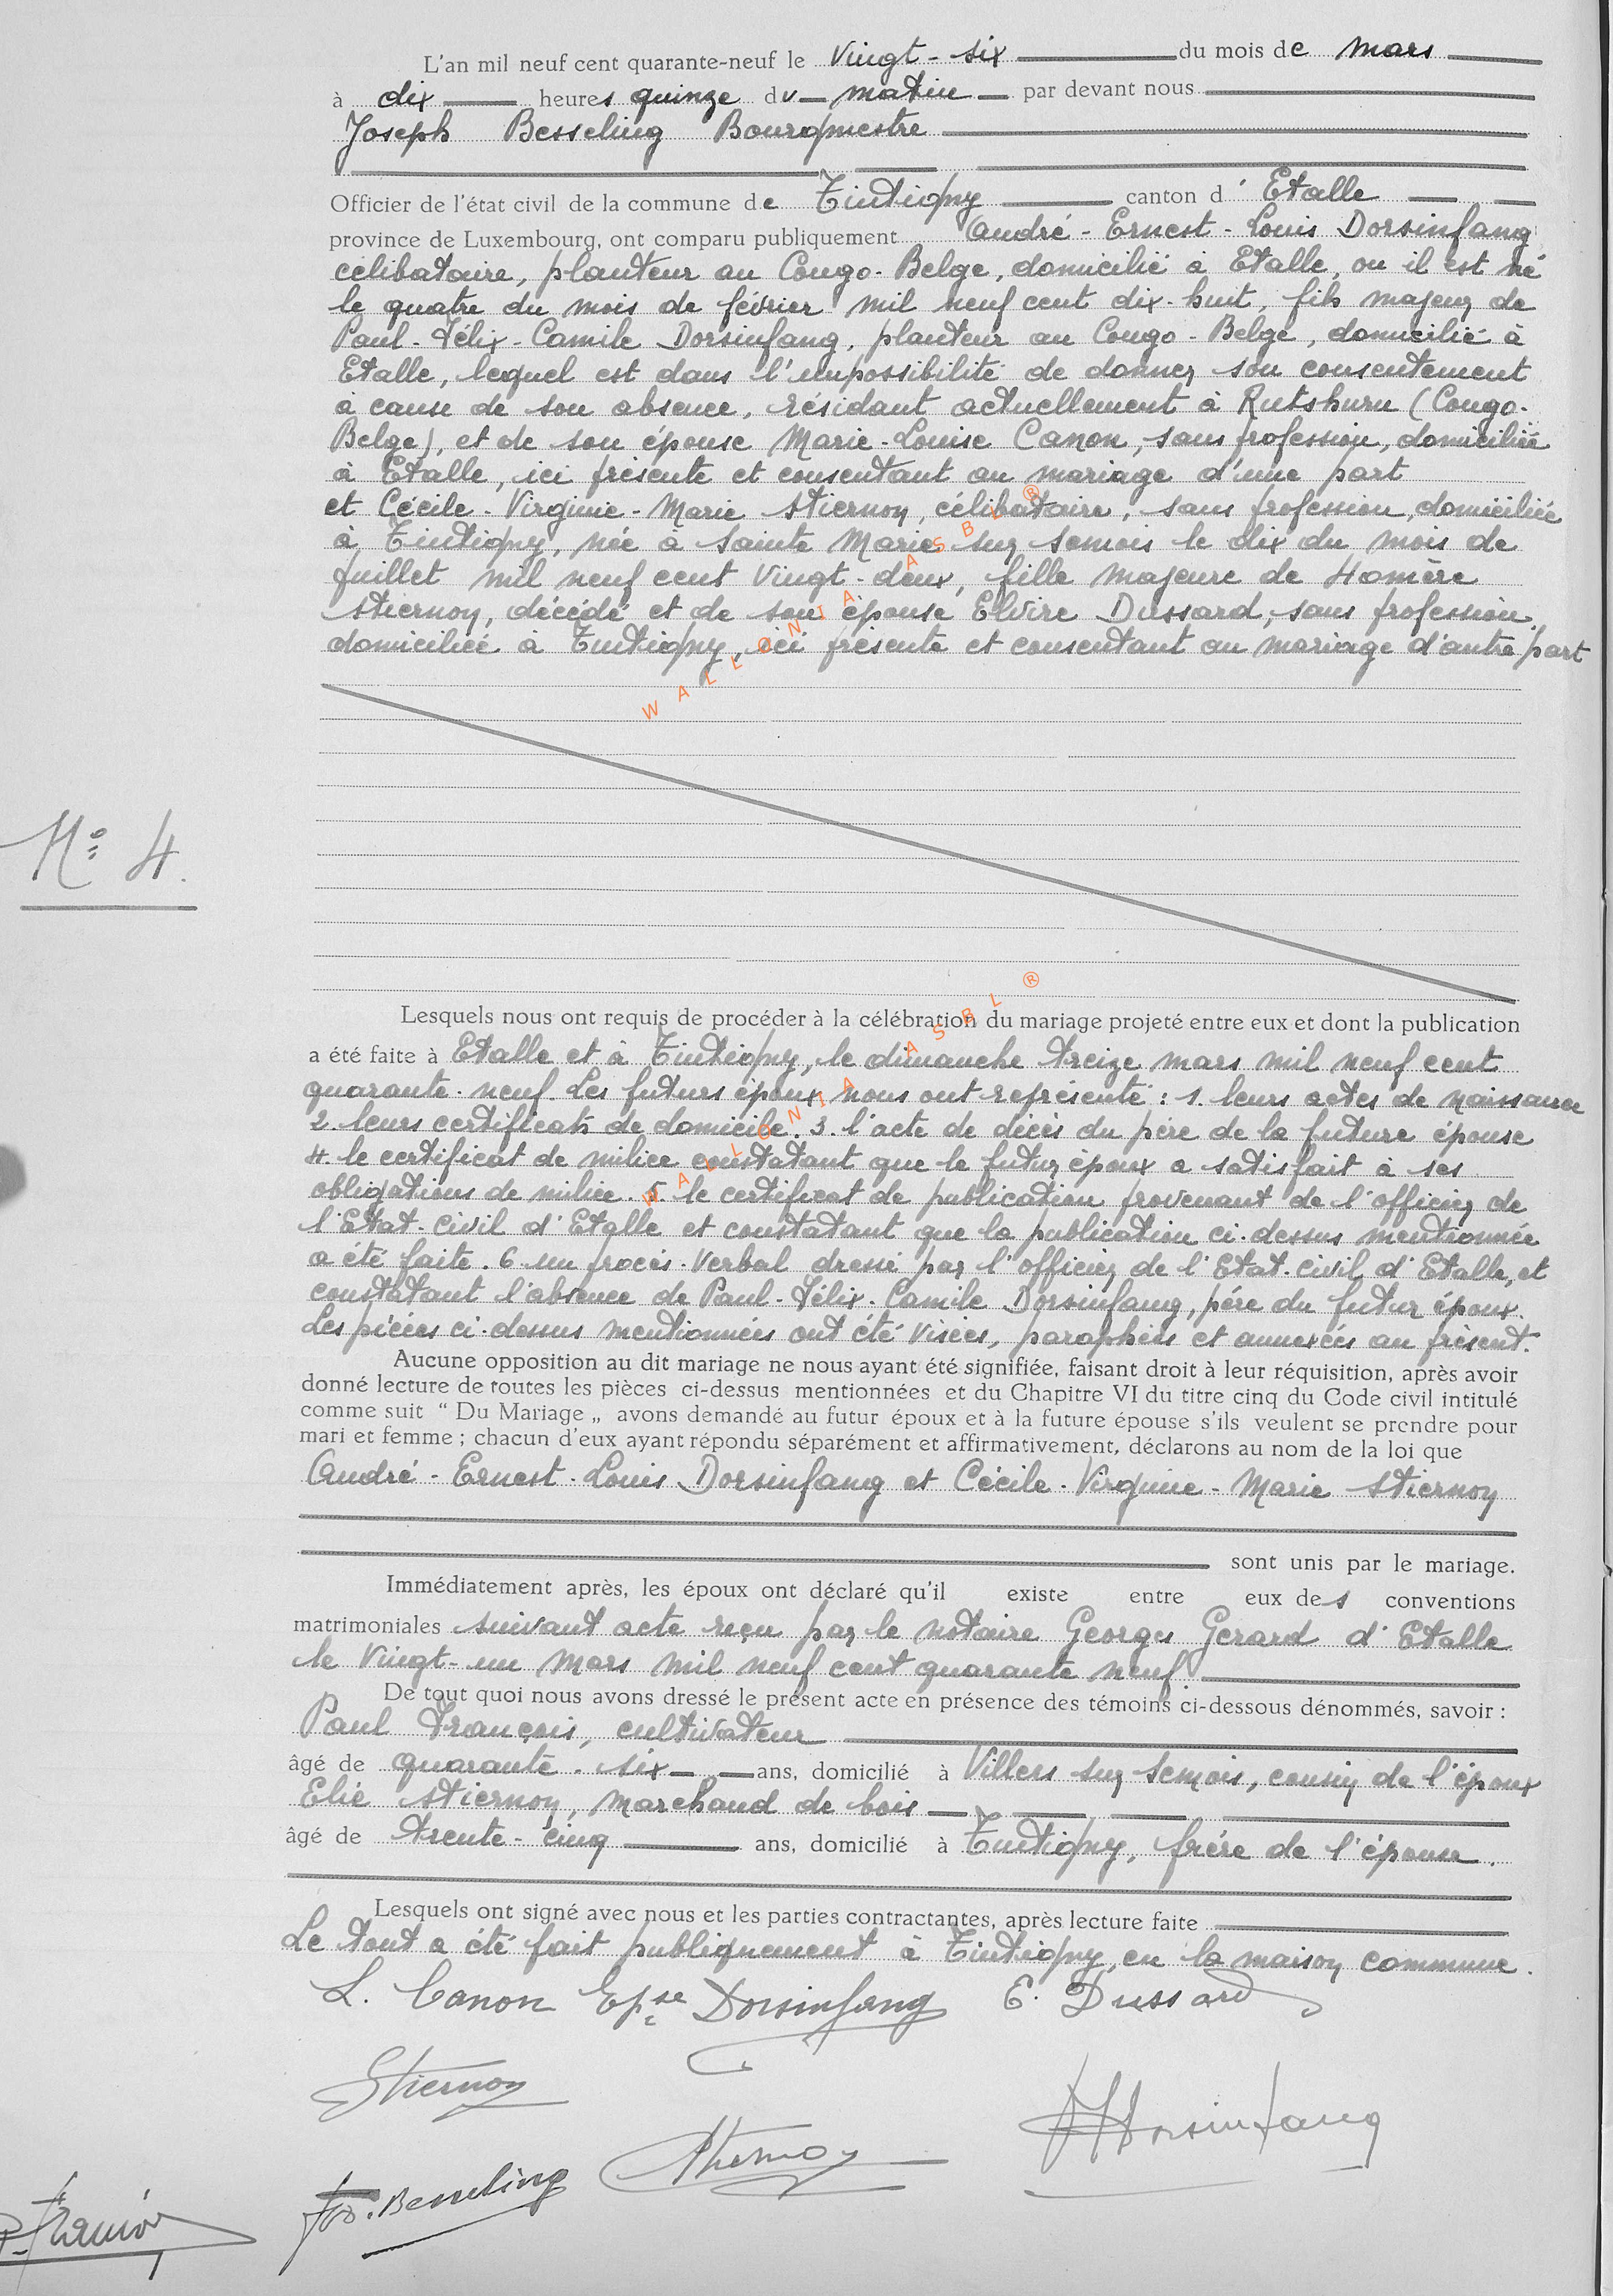 L'an mil neuf cent quarante-neuf le Vingt-six du mois de mars
à dix heures quinze du matin par devant nous
Joseph Besseling Bourgmestre
Officier de l'état civil de la commune de Tintigny canton d' Etalle
province de Luxembourg, ont comparu publiquement André-Ernest-Louis Dorsinfang
célibataire, planteur au Congo-Belge, domicilié à Etalle, ou il est né
le quatre du mois de février mil neuf cent dix-huit, fils majeur de
Paul-Félix-Camile Dorsinfang, planteur au Congo-Belge, domicilié à
Etalle, lequel est dans l'impossibilité de donner son consentement
à cause de son absence, résidant actuellement à Rutshuru (Congo-
Belge), et de son épouse Marie-Louise Canon, sans profession, domiciliée
à Etalle, ici présente et consentant au mariage d'une part
et Cécile-Virginie-Marie Stiernon, célibataire, sans profession, domiciliée
à Tintigny, née à Sainte Marie sur Semois le dix du mois de
Juillet mil neuf cent Vingt-deux, fille majeure de Homère
Stiernon, décédé et de son épouse Elvire Dussard, sans profession,
domiciliée à Tintigny, ici présente et consentant au mariage d'autre part
WALLONIA ASBL ®
N° 4.
Lesquels nous ont requis de procéder à la célébration du mariage projeté entre eux et dont la publication
a été faite à Etalle et à Tintigny, le dimanche treize mars mil neuf cent
quarante-neuf. Les futurs époux nous ont représenté : 1. leurs actes de naissance
2. leurs certificats de domicile. 3. l'acte de décès du père de la future épouse
4. le certificat de milice constatant que le futur époux a satisfait à ses
obligations de milice. 5. le certificat de publication provenant de l'officier de
l'Etat-civil d'Etalle et constatant que la publication ci-dessus mentionnée
a été faite. 6. un procès-verbal dressé par l'officier de l'Etat-civil d'Etalle, et
constatant l'absence de Paul-Félix-Camile Dorsinfang, père du futur époux.
Les pièces ci-dessus mentionnées ont été visées, paraphées et annexées au présent.
WALLONIA ASBL ®
Aucune opposition au dit mariage ne nous ayant été signifiée, faisant droit à leur réquisition, après avoir
donné lecture de toutes les pièces ci-dessus mentionnées et du Chapitre VI du titre cinq du Code civil intitulé
comme suit “ Du Mariage „ avons demandé au futur époux et à la future épouse s'ils veulent se prendre pour
mari et femme ; chacun d'eux ayant répondu séparément et affirmativement, déclarons au nom de la loi que
André-Ernest-Louis Dorsinfang et Cécile-Virginie-Marie Stiernon
sont unis par le mariage.
Immédiatement après, les époux ont déclaré qu'il existe entre eux des conventions
matrimoniales suivant acte reçu par le notaire Georges Gerard d'Etalle
le Vingt-un Mars mil neuf cent quarante neuf.
De tout quoi nous avons dressé le présent acte en présence des témoins ci-dessous dénommés, savoir :
Paul François, cultivateur
âgé de quarante-six ans, domicilié à Villers sur Semois, cousin de l'époux
Elie Stiernon, Marchand de bois
âgé de trente-cinq ans, domicilié à Tintigny, frère de l'épouse.
Lesquels ont signé avec nous et les parties contractantes, après lecture faite
Le tout a été fait publiquement à Tintigny, en la maison commune.
L. Canon Epse Dorsinfang E. Dussard
Stiernon
Dorsinfang
Stiernon
Jos. Besseling